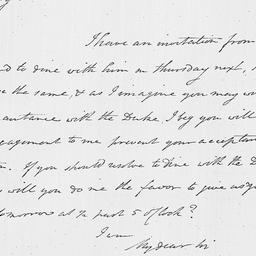 I have an invitation from
to dine with him on thursday next,
the same, & as I imagine you may
acquaintance with the Duke. I beg you will
engagement to me prevent your acceptance
If you should resolve to dine with the D
will you do me the favor to give us
tomorrow at ½ past 5 oClock?
I am
My dear Sir